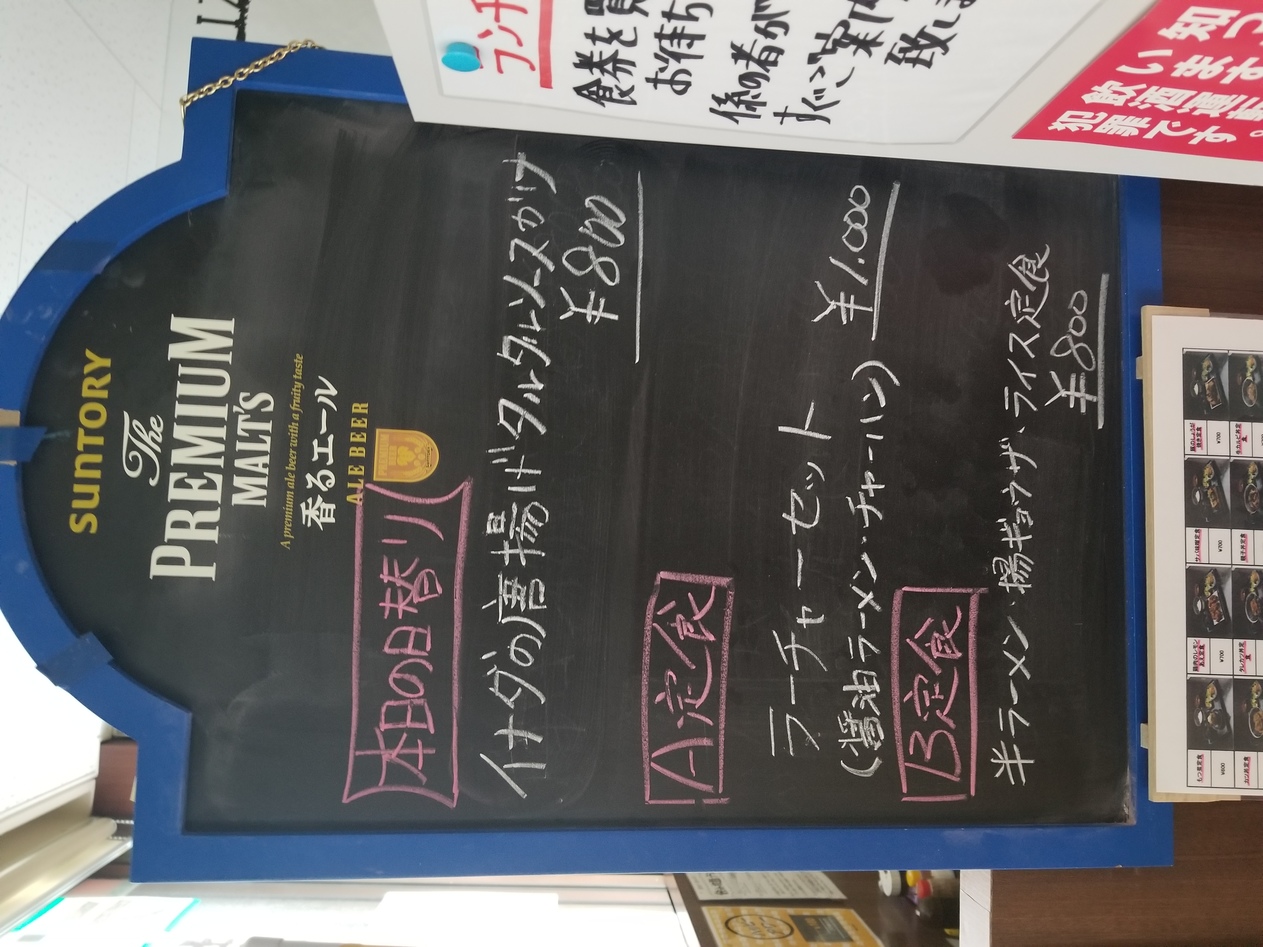 SUNTORY
The
PREMIUM
MALT'S
A premium ale beer with a fruity taste
香るエール
ALE BEER
本日の日替り
イナダの唐揚げタルタルソースがけ
¥800
A定食
ラーチャーセット
¥1.000
(醤油ラーメン・チャーハン)
B定食
半ラーメン・揚ギョウザ・ライス定食
¥800
ランチ
食券を買
お待ち
係の者が
すぐご案内
致しま
知っ
い ます
飲酒運転
犯罪です。
¥700
¥700
¥700
¥600